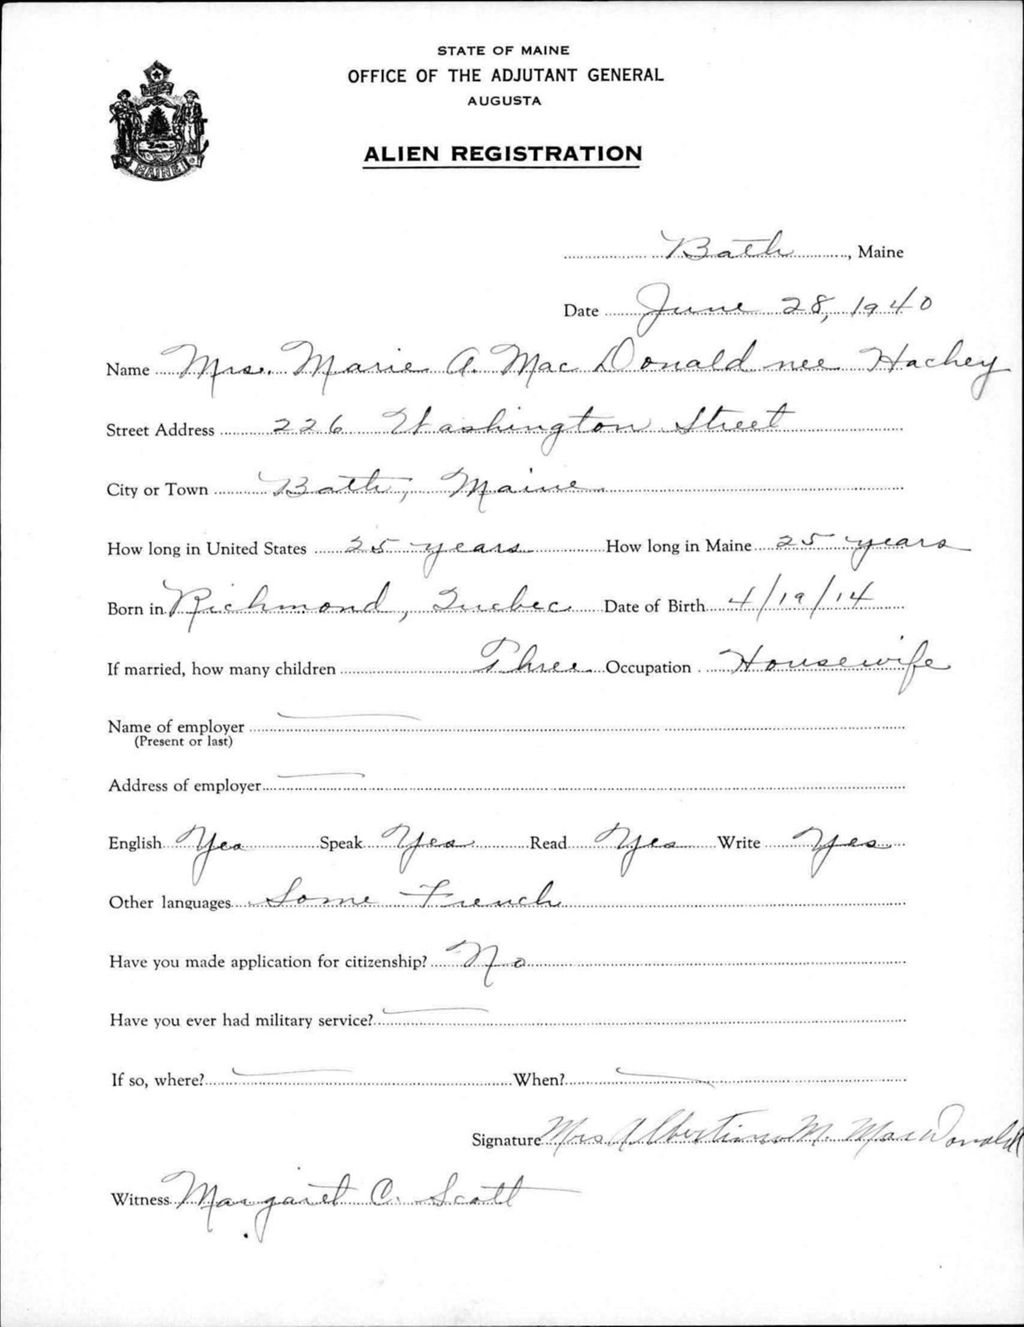 STATE OF MAINE
OFFICE OF THE ADJUTANT GENERAL
AUGUSTA
ALIEN REGISTRATION
MAINE
Bath, Maine
Date June 28, 1940
Name Mrs. Marie A. Mac Donald nee Hachey
Street Address 226 Washington Street
City or Town Bath, Maine
How long in United States 25 years How long in Maine 25 years
Born in Richmond, Quebec Date of Birth 4/19/14
If married, how many children Three Occupation Housewife
Name of employer
(Present or last)
Address of employer
English Yes Speak Yes Read Yes Write Yes
Other languages Some French
Have you made application for citizenship? No
Have you ever had military service?
If so, where? When?
Signature Mrs Albertine M. MacDonald
Witness Margaret C. Scott